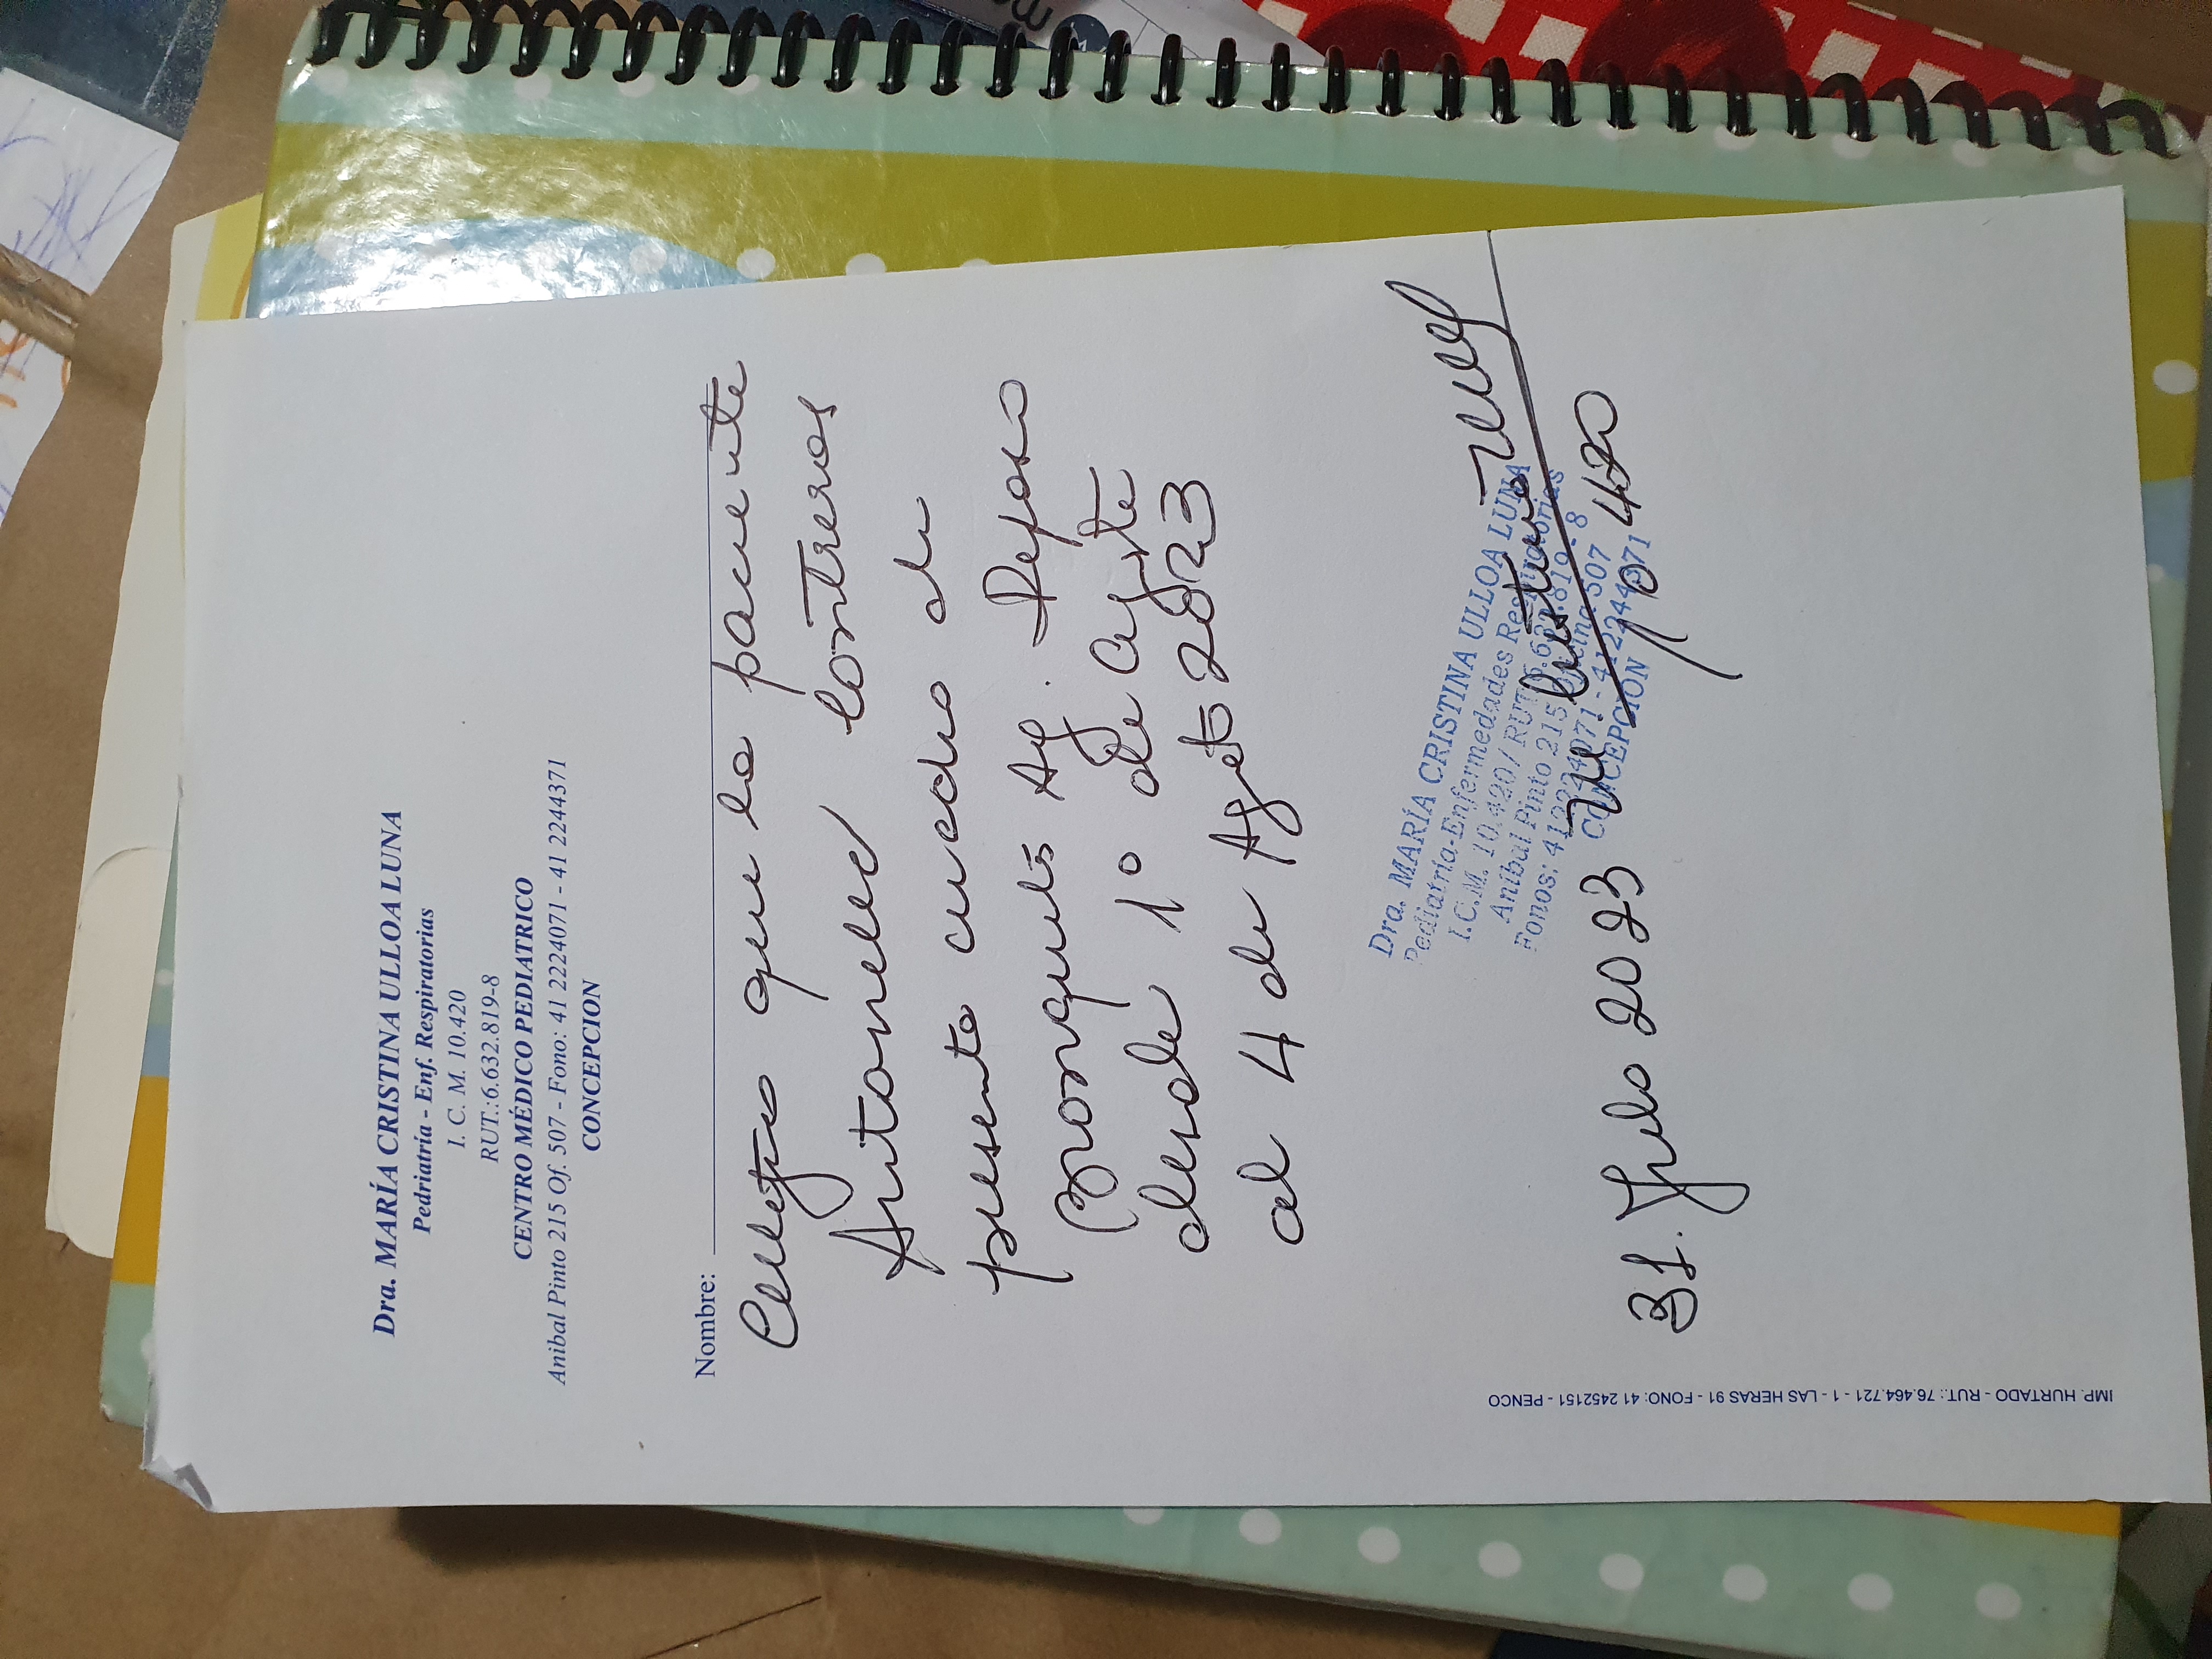 Dra. MARÍA CRISTINA ULLOA LUNA
Pedriatría - Enf. Respiratorias
I. C. M. 10.420
RUT.:6.632.819-8
CENTRO MÉDICO PEDIATRICO
Anibal Pinto 215 Of. 507 - Fono: 41 2224071 - 41 2244371
CONCEPCION
Nombre:
Certifico que la paciente
Antonella Contreras
presenta cuadro de
Bronquitis Ag. Reposo
desde 1º de Agosto
al 4 de Agosto 2023
Dra. MARÍA CRISTINA ULLOA LUNA
Pediatría-Enfermedades Respiratorias
I.C.M. 10.420 / RUT: 6.632.819-8
Anibal Pinto 215 Oficina 507
Fonos: 412224071 - 412244371
CONCEPCION
31. Julio 2023
10420
IMP. HURTADO - RUT.: 76.464.721 - 1 - LAS HERAS 91 - FONO: 41 2452151 - PENCO